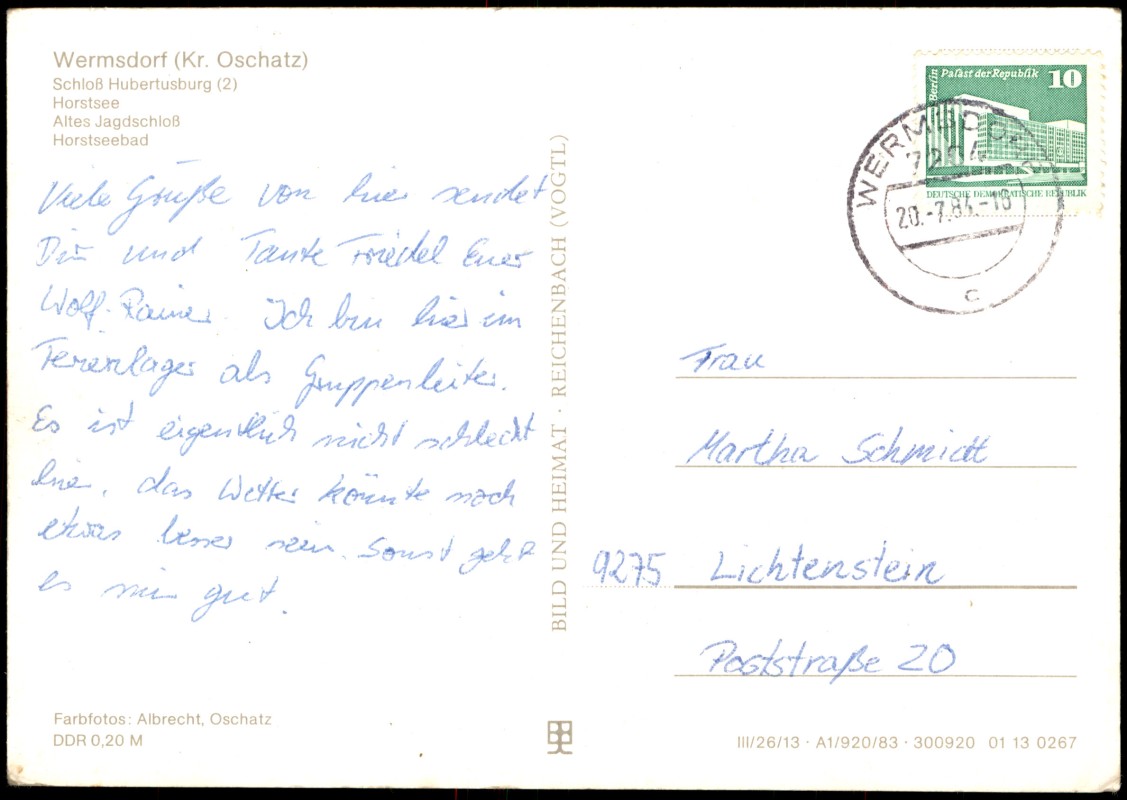 Wermsdorf (Kr. Oschatz)
Schloß Hubertusburg (2)
Horstsee
Altes Jagdschloß
Horstseebad
Viele Grüße von hier sendet
Dir und Tante Friedel Euer
Wolf-Rainer. Ich bin hier im
Ferienlager als Gruppenleiter.
Es ist eigentlich nicht schlecht
hier, das Wetter könnte noch
etwas besser sein. Sonst geht
es mir gut.
Farbfotos: Albrecht, Oschatz
DDR 0,20 M
BILD UND HEIMAT · REICHENBACH (VOGTL)
Berlin Palast der Republik 10
DEUTSCHE DEMOKRATISCHE REPUBLIK
WERMSDORF
7264
20.-7.84.-18
c
Frau
Martha Schmidt
9275 Lichtenstein
Poststraße 20
III/26/13 · A1/920/83 · 300920 01 13 0267